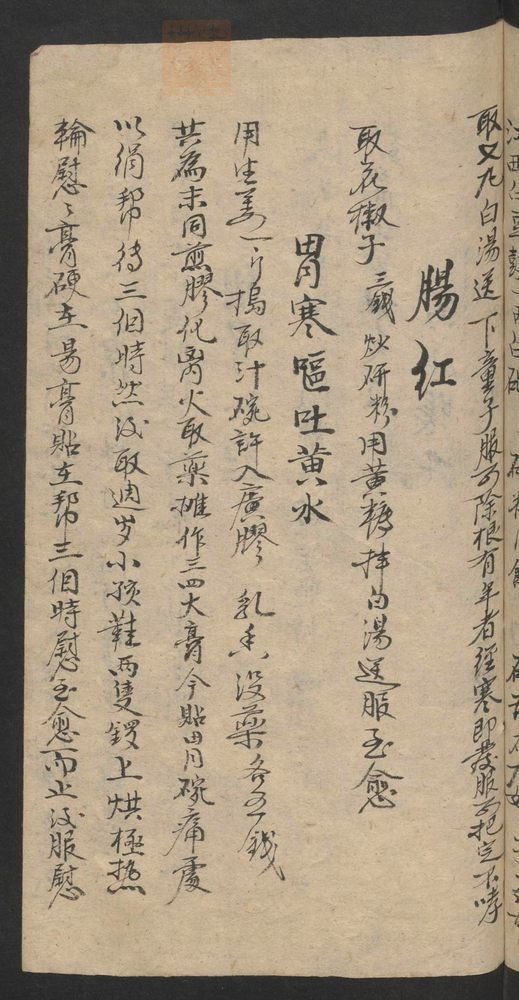 取又九白湯送下童子服可除根有年者經寒即發服可把定不哮
腸紅
取花椒子三錢炒研粉用黄糖拌白湯送服至愈
胃寒嘔吐黄水
用生姜一斤搗取汁碗許入廣膠 乳香没藥各五錢
共為末同煎膠化离火取藥摊作三四大膏令貼胃碗痛處
以絹帮待三個時然後取週岁小孩鞋兩隻鍰上烘極热
輪慰〻膏硬立易膏貼立帮三個時慰至愈而止後服慰